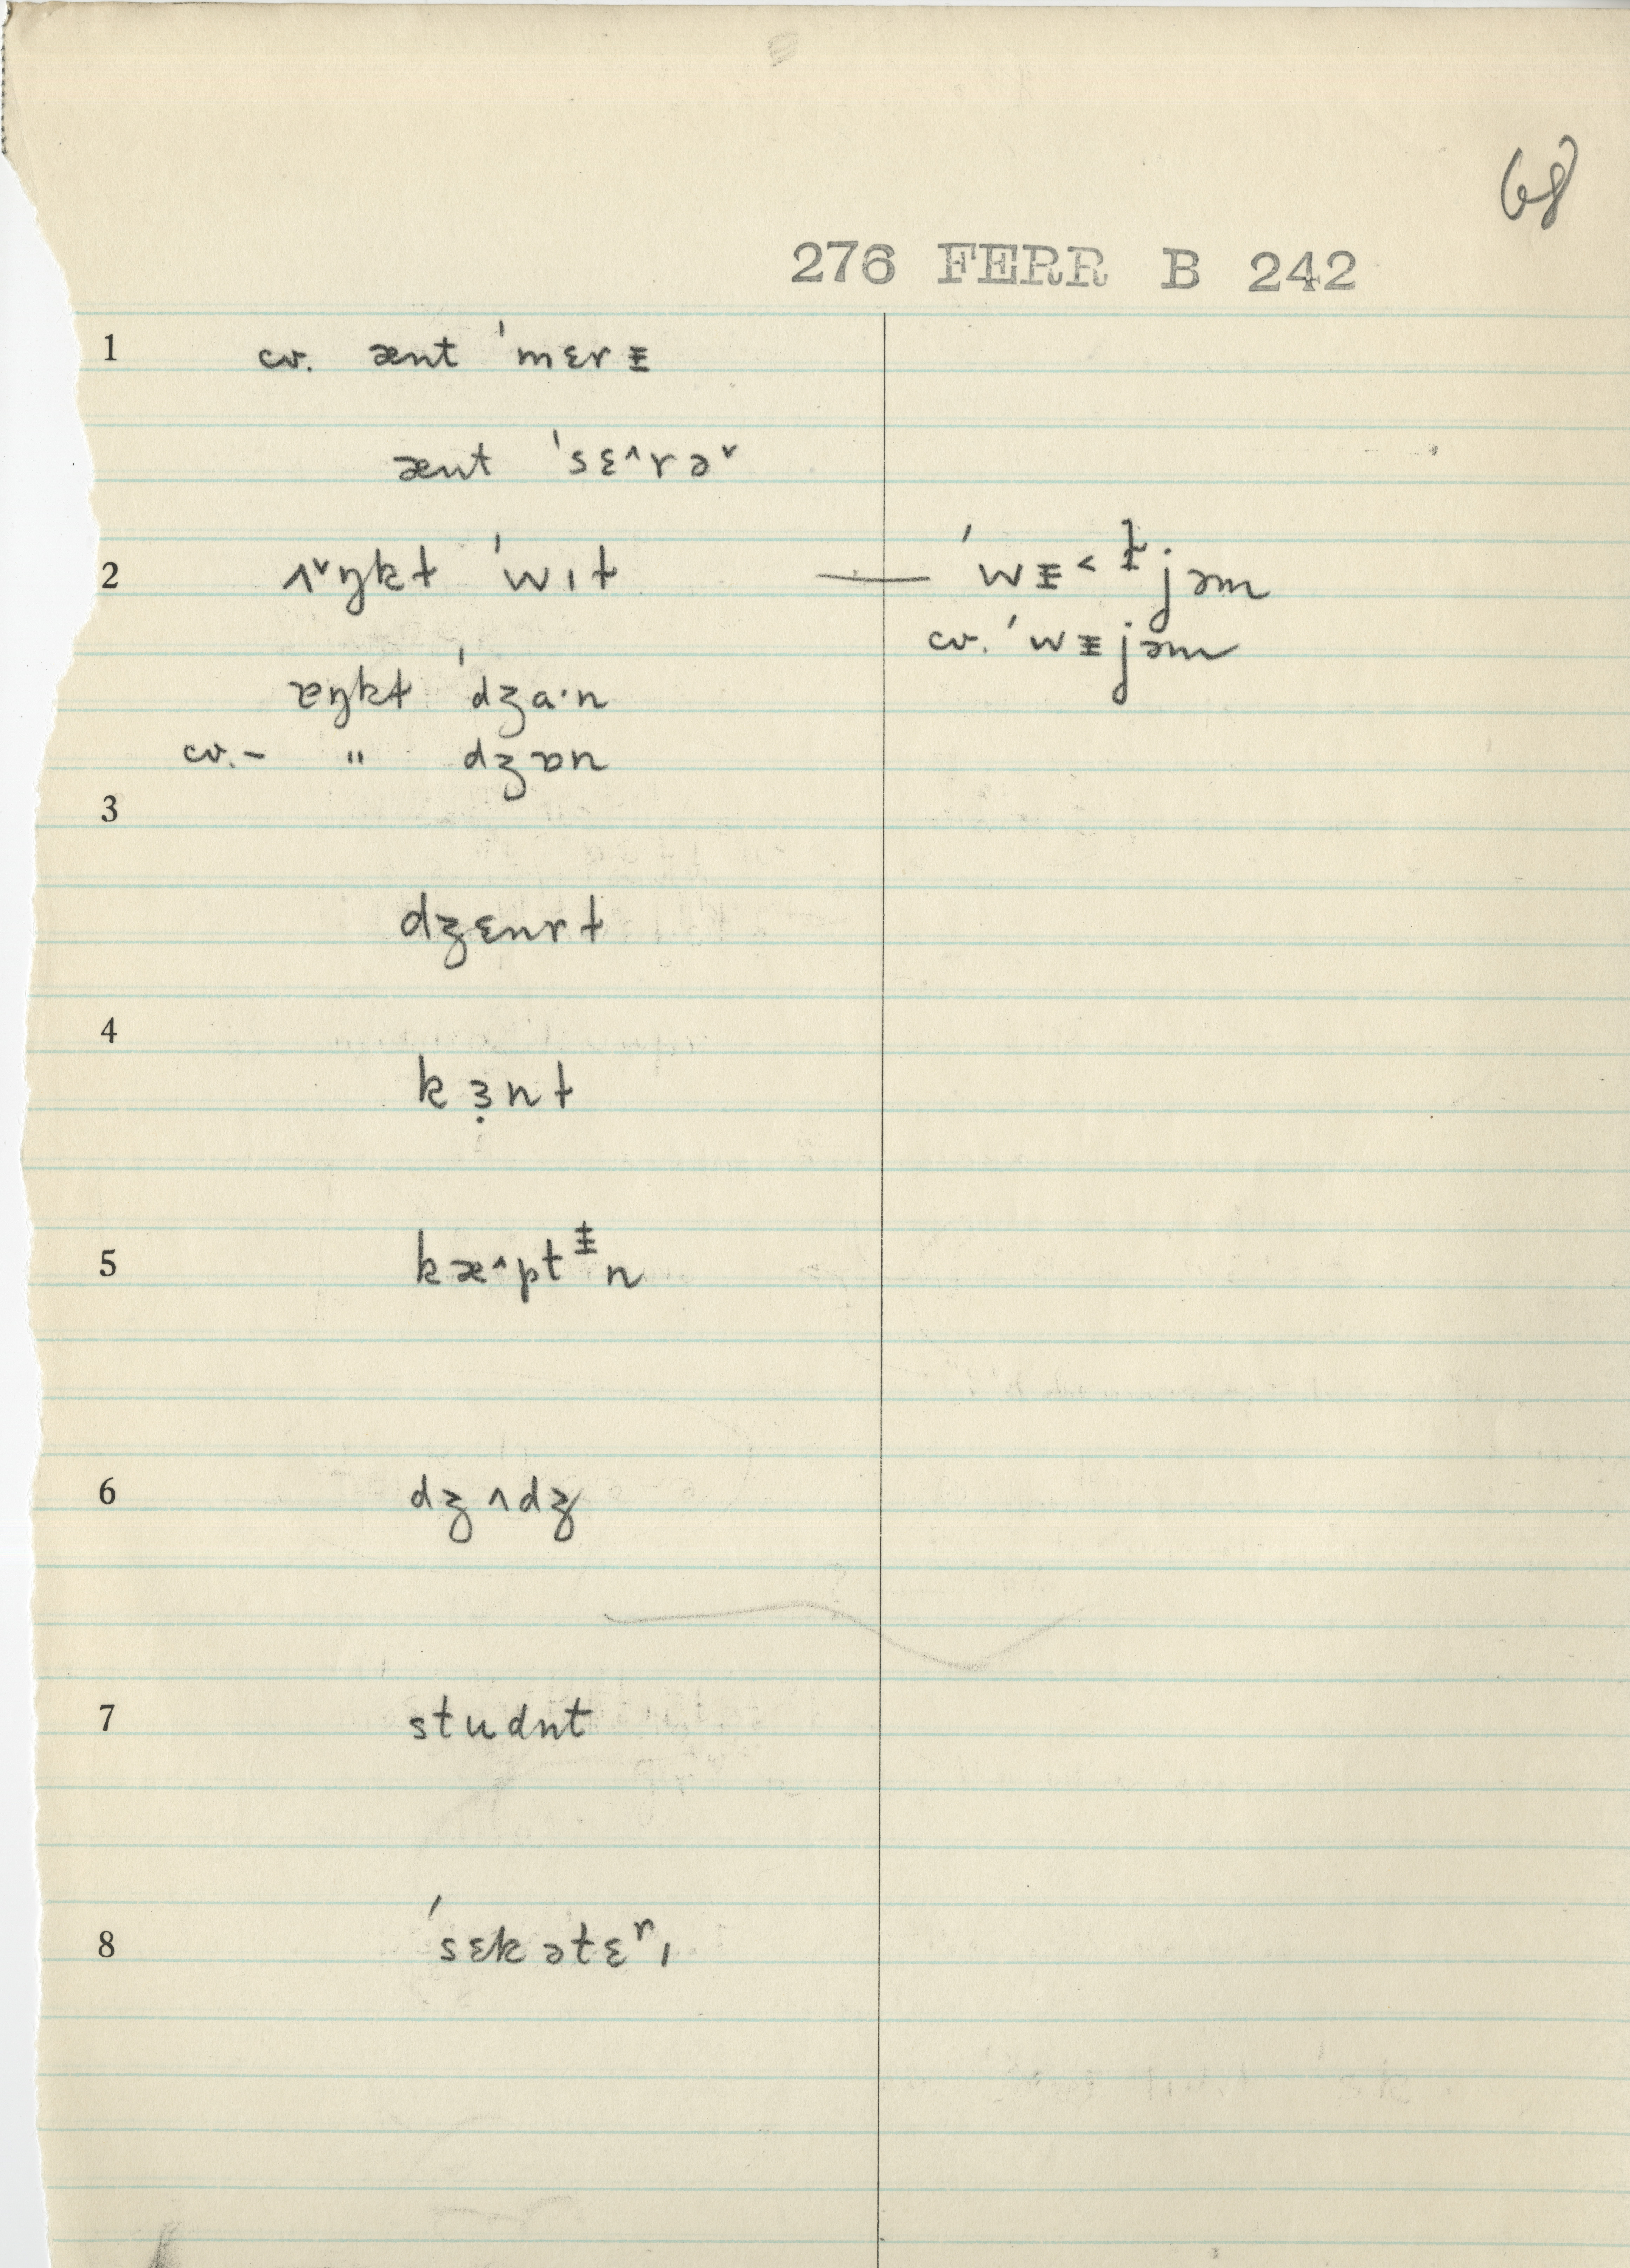 68
276 FERR B 242
1 cv. ænt ˈmɛrɪ̵
ænt ˈsɛ^rə˅
2 ʌ˅ŋkɫ ˈwɪɫ — ˈwɪ̵˂ɫjəm
cv. ˈwɪ̵jəm
ɐŋkɫ ˈdʒɑ·n
cv. – " dʒɒn
3
dʒɛnrɫ
4
kɜ̣nɫ
5 kæ^ptɪ̵n
6 dʒʌdʒ
7 studnt
8 ˈsɛkətɛʳɪ